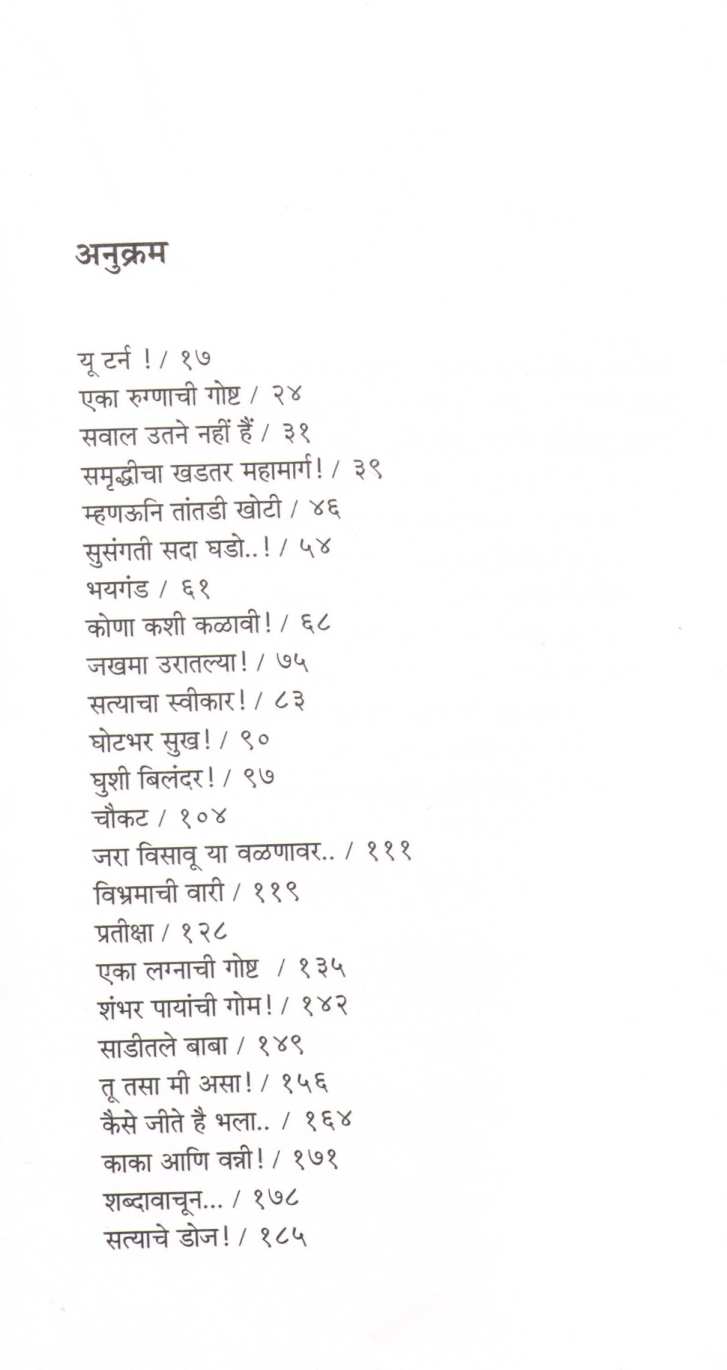 अनुक्रम
यू टर्न ! / १७
एका रुग्णाची गोष्ट / २४
सवाल उतने नहीं हैं / ३१
समृद्धीचा खडतर महामार्ग! / ३९
म्हणऊनि तांतडी खोटी / ४६
सुसंगती सदा घडो..! / ५४
भयगंड / ६१
कोणा कशी कळावी! / ६८
जखमा उरातल्या! / ७५
सत्याचा स्वीकार! / ८३
घोटभर सुख! / ९०
घुशी बिलंदर! / ९७
चौकट / १०४
जरा विसावू या वळणावर.. / १११
विभ्रमाची वारी / ११९
प्रतीक्षा / १२८
एका लग्नाची गोष्ट / १३५
शंभर पायांची गोम! / १४२
साडीतले बाबा / १४९
तू तसा मी असा! / १५६
कैसे जीते है भला.. / १६४
काका आणि वन्नी! / १७१
शब्दावाचून... / १७८
सत्याचे डोज! / १८५